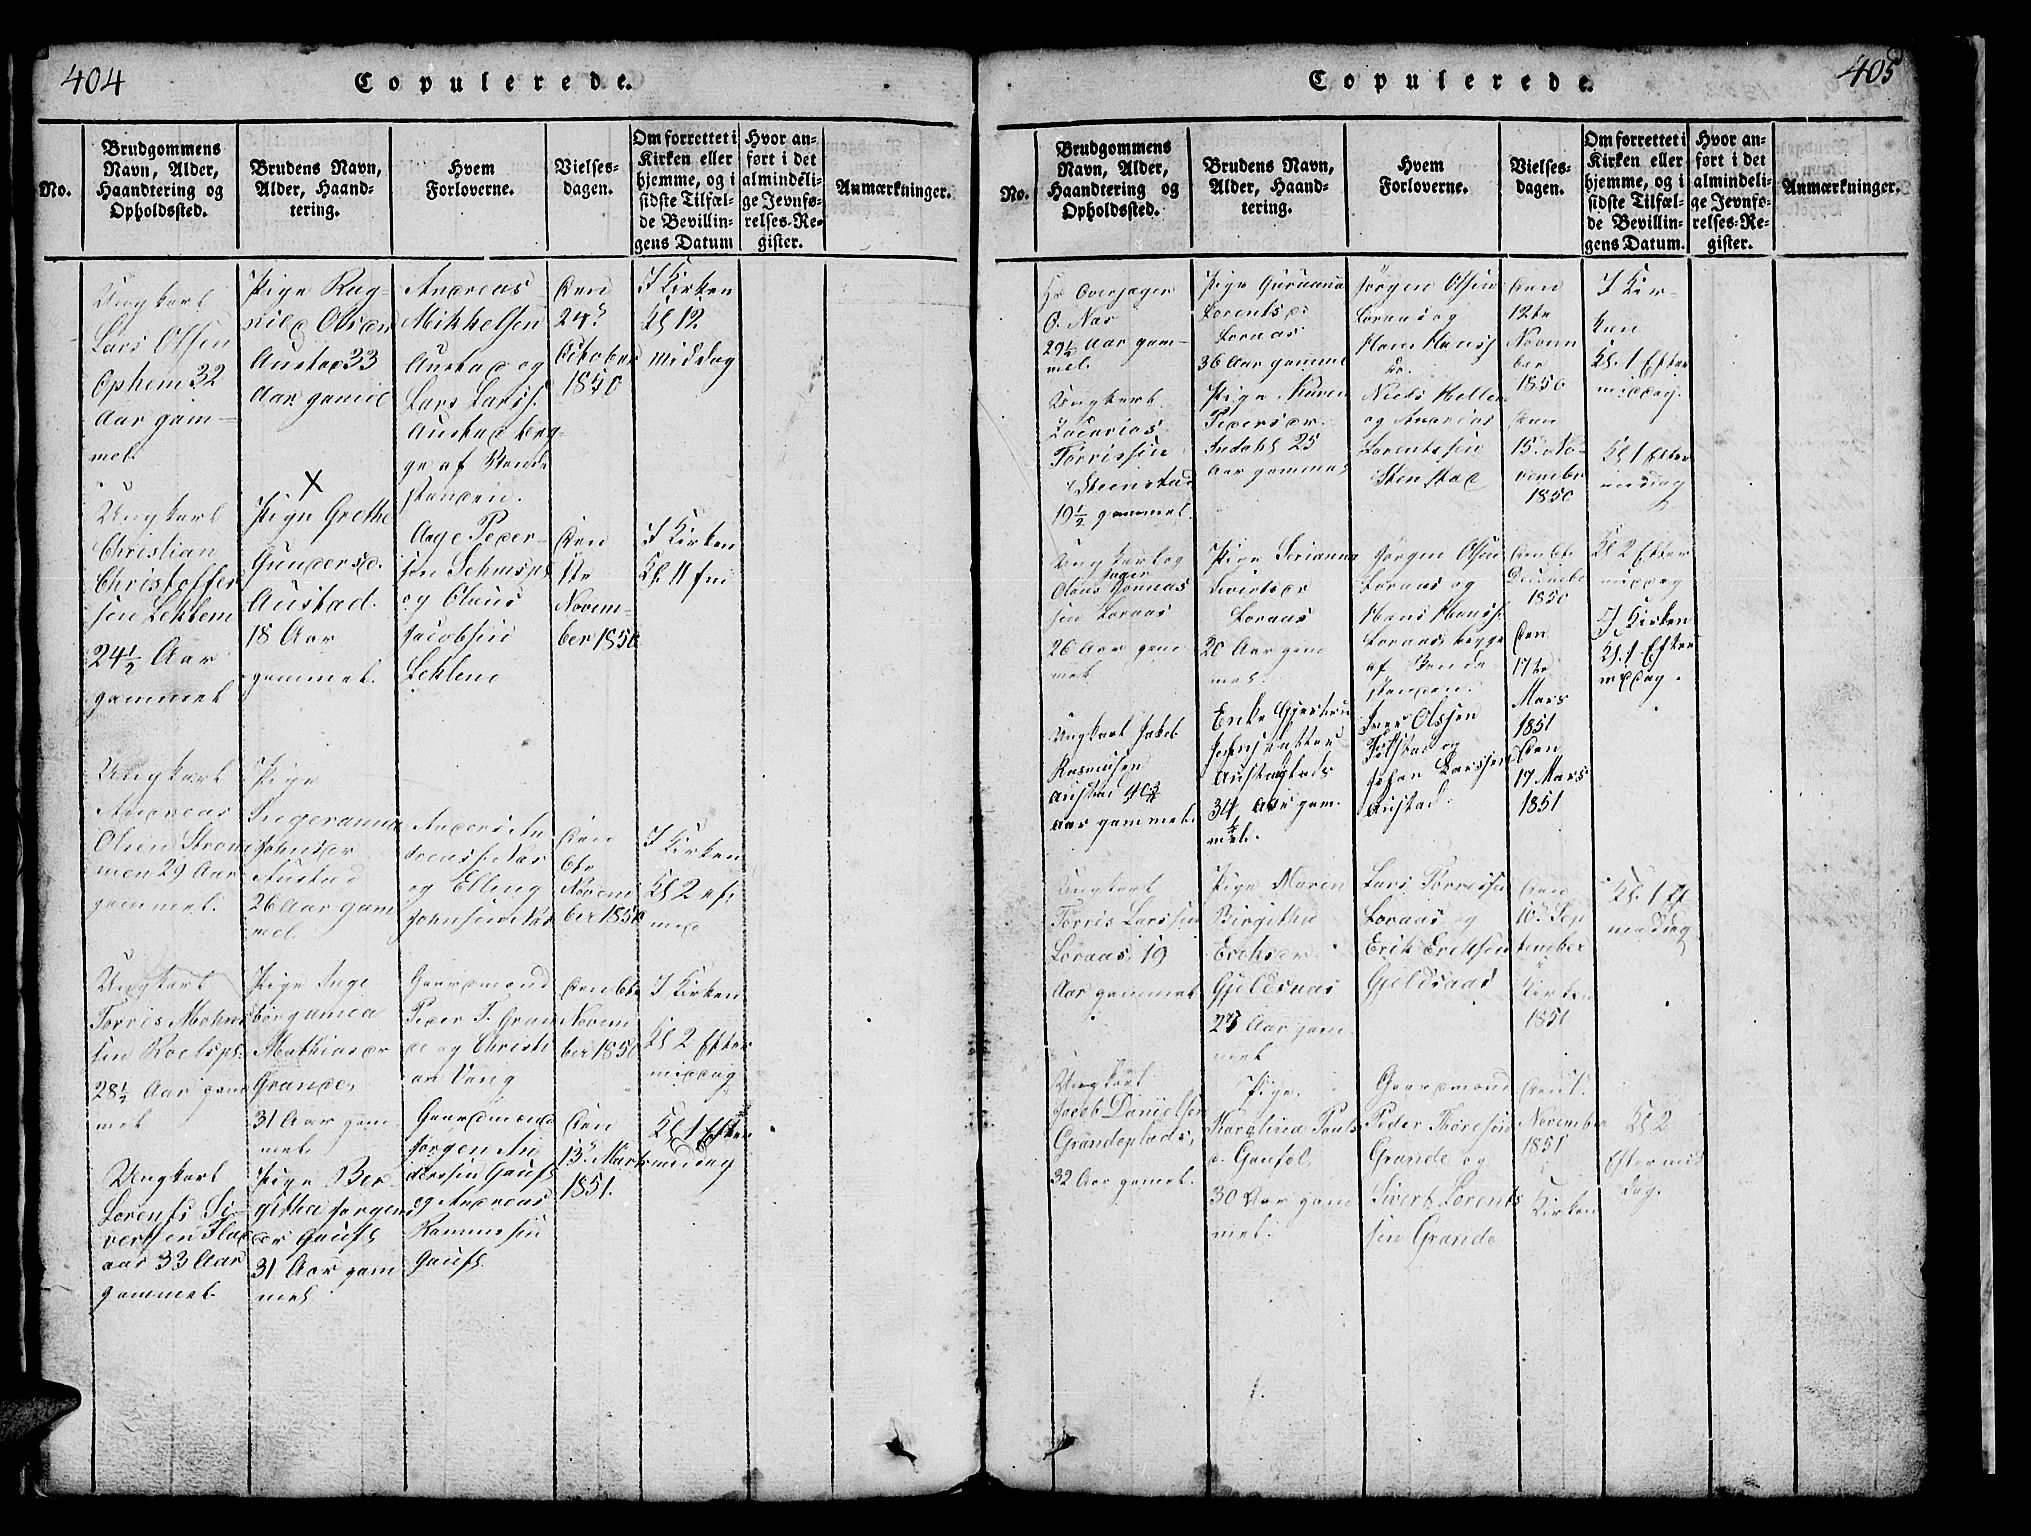 404
Copulerede.
No.
Brudgommens
Navn, Alder,
Haandtering og
Opholdssted.
Brudens Navn,
Alder, Haand-
tering.
Hvem
Forloverne.
Vielses-
dagen.
Om forrettet i
Kirken eller
hjemme, og i
sidste Tilfæl-
de Bevillin-
gens Datum
Hvor an-
ført i det
almindeli-
ge Jevnfø-
relses-Re-
gister.
Anmærkninger.
Ungkarl
Lars Olsen
Ophem 32
Aar gam-
mel.
Pige Rag-
nild Olsdr
Austad 33
Aar gamel
Andreas
Mikkelsen
Austad og
Lars Larss.
Austad beg-
ge af Bonde
standen.
Den
24d
October
1850
I Kirken
Kl 12
middag
Ungkarl
Christian
Christoffer
sen Leklem
24½ Aar
gammel
X
Pige Grethe
Gundersd.
Austad.
18 Aar
gammel.
Aage Peder-
sen
og Claus
Jacobsen
Leklem
Den
1te
Novem-
ber 1850
I Kirken
Kl. 11 fm
Ungkarl
Andreas
Olsen Strom
men 29 Aar
gammel.
Pige
Ingeranna
Johnsdr
Austad
26 Aar gam
mel
Anders An
dreass. Næs
og Elling
Johnsen Næs
Den
6te
Novem
ber 1850
I Kirken
Kl 2 ef.
med
Ungkarl
Torris Mohns
sen
28½ Aar gam
mel
Pige Inge-
borganna
Mathiasdr
Grande,
31 Aar gam
mel.
Gaardmand
Peder T. Gran
de og Christi
an Vang
Den 6te
Novem
ber 1850
I Kirken
Kl 2 Efter
middag
Ungkarl
Lorents Si-
vertsen Flad
aas 33 Aar
gammel.
Pige Ber
githa Jørgens
dr
31 Aar gam
mel
Gaardmand
Jørgen An
dersen
og Andreas
Rasmussen
Den
13d Marts
1851.
Kl. 1 Efter
middag
405
Copulerede.
No.
Brudgommens
Navn, Alder,
Haandtering og
Opholdssted.
Brudens Navn,
Alder, Haand-
tering.
Hvem
Forloverne.
Vielses-
dagen.
Om forrettet i
Kirken eller
hjemme, og i
sidste Tilfæl-
de Bevillin-
gens Datum.
Hvor an-
ført i det
almindeli-
ge Jevnfø-
relses-Re-
gister.
Anmærkninger.
Hr Overjæger
O. Næs
29½ Aar gam-
mel.
Pige Guruanna
Lorentsdr
Loraas
36 Aar gammel
Jørgen Olsen
Loraas og
Den
12te
Novem
ber
1850
I Kir-
ken
Kl. 1 Efter
middag.
Ungkarl
Zacarias
Torrissen
Steinstad
19½ gammel.
Pige Karen
Pedersdr.
Indahl 25
Aar gammel
Niels Hellem
og Andreas
Lorentssen
Stenstad
Den
15d No-
vember
1850
Kl 1 Efter
middag
Ungkarl og
Jæger
Olaus Tommas
sen Loraas
26 Aar gam
mel
Pige Serianna
Sivertsdr
Loraas
20 Aar gam
mel.
Jørgen Olsen
Loraas og
Hans Hanss.
Loraas begge
af Bonde
standen.
Den 6te
Decembr
1850
Kl 2 Efter
middag
Ungkarl Jakob
Rasmusen
Austad 40¾
Aar gammel.
Enke Gjertrud
Johnsdatter
Austadplads
34 Aar gam.
mel.
Iver Olssen
Tolstad og
Johan Larssen
Austad.
Den
17te
Mars
1851
Den
17 Mars
1851
I Kirken
Kl. 1 Efter
middag.
Ungkarl
Torris Larssen
Loraas, 19
Aar gammel
Pige Maren
Birgitha
Eriksdr.
Gjeldsaas
27 Aar gam
mel
Lars Torressen
Loraas og
Erik Eriksen
Gjeldsaas
Den
10d Sep
tember
i
Kirken
1851
Kl. 1 Ef
middag
Ungkarl
Jacob Danielsen
Grandeplads,
32 Aar gamel.
Pige,
Karolina Pouls
d.
30 Aar gam
mel.
Gaardmand
Peder Thoresen
Grande og
Sivert Lorents
sen Grande
Den 1.
November
1851
i
Kirken
Kl 2
Eftermid
dag.